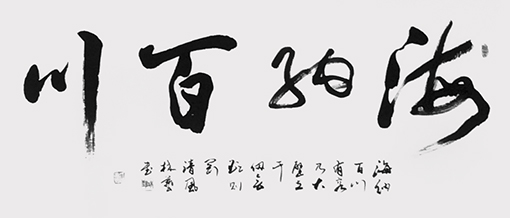 海纳百川
海纳
百川
有容
乃大
壁立
千
仞无
欲则
刚
清风